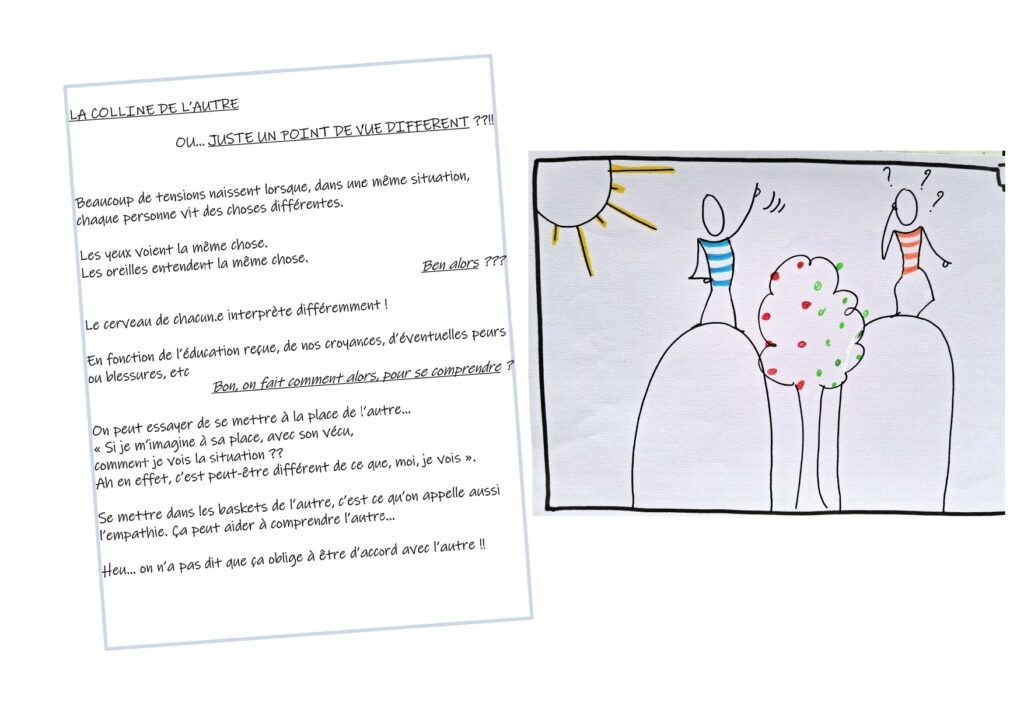 LA COLLINE DE L'AUTRE
OU... JUSTE UN POINT DE VUE DIFFERENT ??!!
Beaucoup de tensions naissent lorsque, dans une même situation,
chaque personne vit des choses différentes.
Les yeux voient la même chose.
Les oreilles entendent la même chose.
Ben alors ???
Le cerveau de chacun.e interprète différemment !
En fonction de l'éducation reçue, de nos croyances, d'éventuelles peurs
ou blessures, etc
Bon, on fait comment alors, pour se comprendre ?
On peut essayer de se mettre à la place de l'autre...
« Si je m'imagine à sa place, avec son vécu,
comment je vois la situation ??
Ah en effet, c'est peut-être différent de ce que, moi, je vois ».
Se mettre dans les baskets de l'autre, c'est ce qu'on appelle aussi
l'empathie. Ça peut aider à comprendre l'autre...
Heu... on n'a pas dit que ça oblige à être d'accord avec l'autre !!
? ? ?